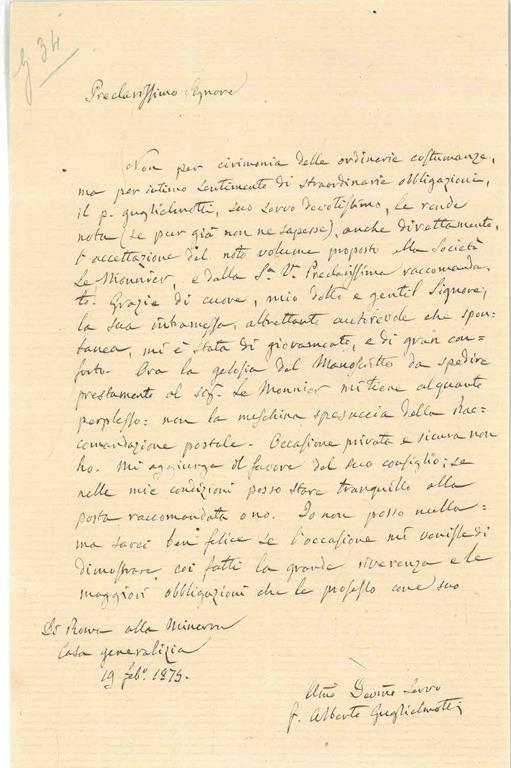 g 34
Preclarissimo Signore
Non per cirimonia delle ordinarie costumanze,
ma per intimo sentimento di straordinarie obbligazioni,
il p. Guglielmotti, suo servo devotissimo, le rende
nota (se pur già non ne sapesse), anche direttamente,
l'accettazione del noto volume proposto alla Società
Le Monnier, e dalla S.a V.a Preclarissima raccomanda-
to. Grazie di cuore, mio dotto e gentil Signore;
la sua intramessa, altrettanto autorevole che spon-
tanea, mi è stata di giovamento, e di gran con-
forto. Ora la gelosia del Manoscritto da spedire
prestamente al sig. Le Monnier mi tiene alquanto
perplesso: non la meschina spesuccia della Rac-
comandazione postale. Occasione privata e sicura non
ho. Mi aggiunga il favore del suo consiglio; se
nelle mie condizioni posso stare tranquillo alla
posta raccomandata o no. Io non posso nulla:
ma sarei ben felice se l'occasione mi venisse di
dimostrare coi fatti la grande riverenza e le
maggiori obbligazioni che le professo come suo
Di Roma alla Minerva
Casa generalizia
19 feb.o 1875.
Umo Devmo Servo
f. Alberto Guglielmotti